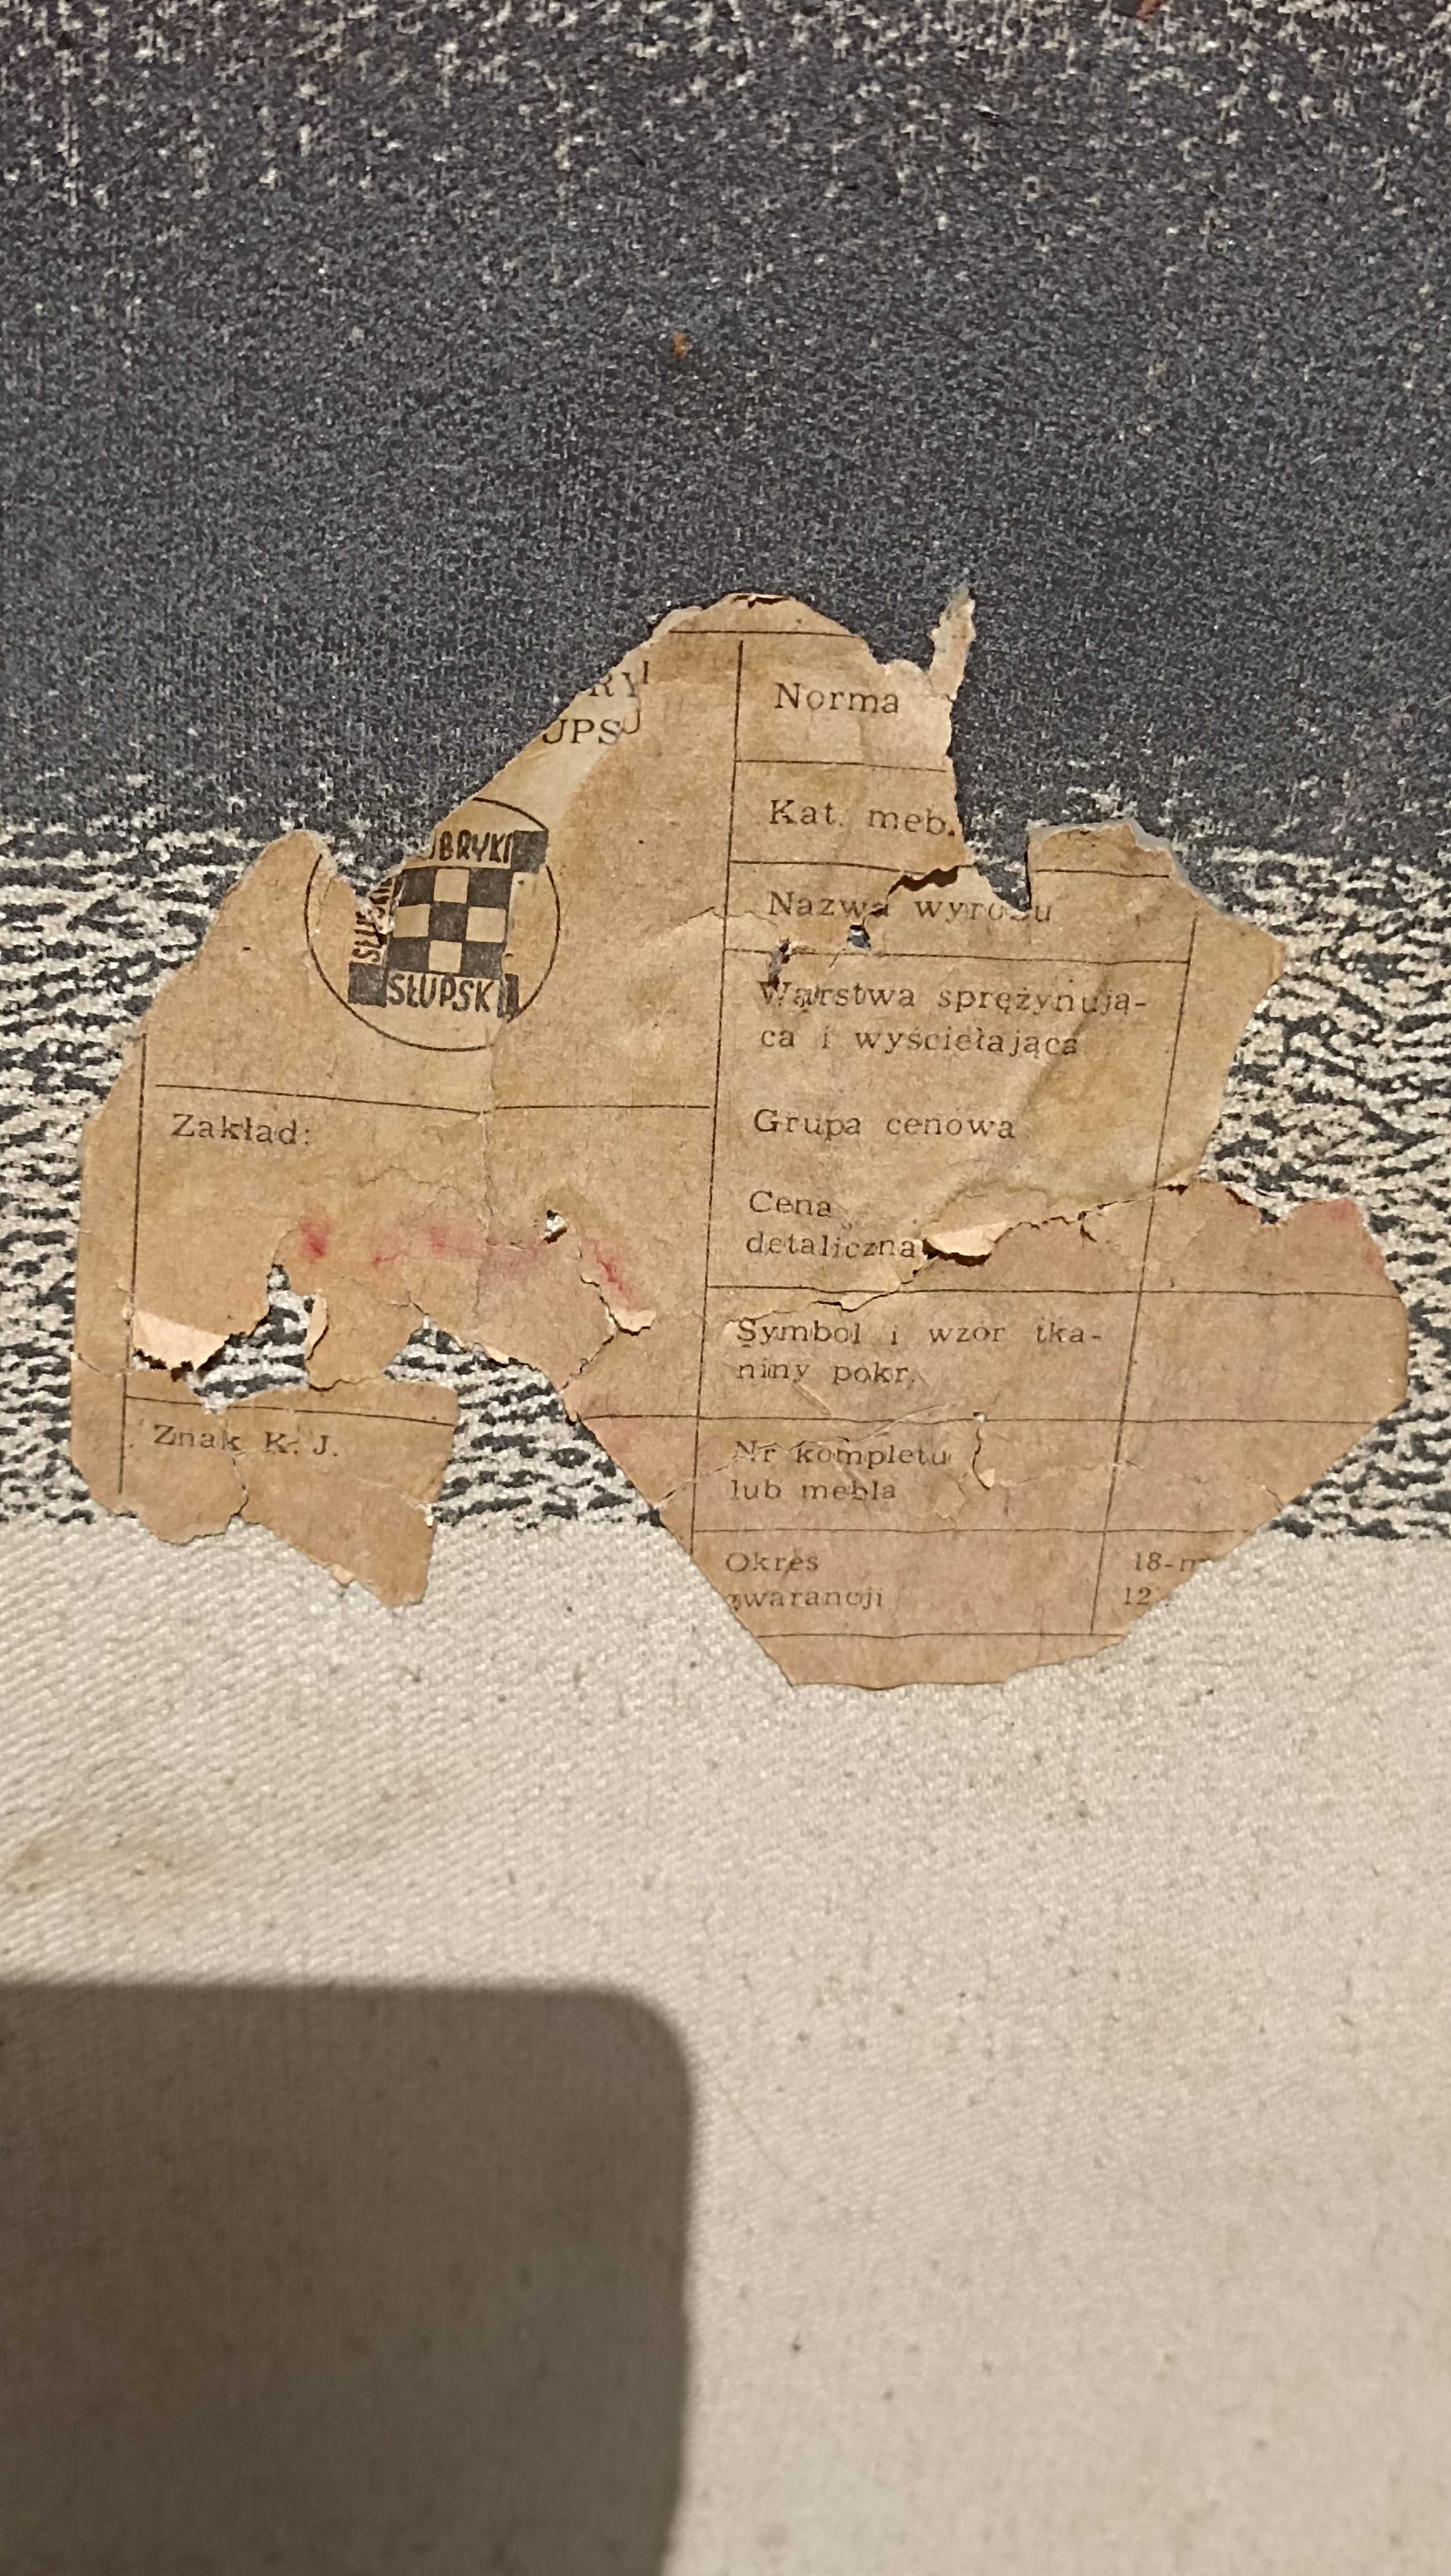 RY
UPS
BRYKI
SŁUPSKI
Zakład:
Znak K. J.
Norma
Kat. meb.
Nazwa wyrobu
Warstwa sprężynują-
ca i wyściełająca
Grupa cenowa
Cena
detaliczna
Symbol i wzór tka-
niny pokr.
Nr kompletu
lub mebla
Okres 18-m
gwarancji 12